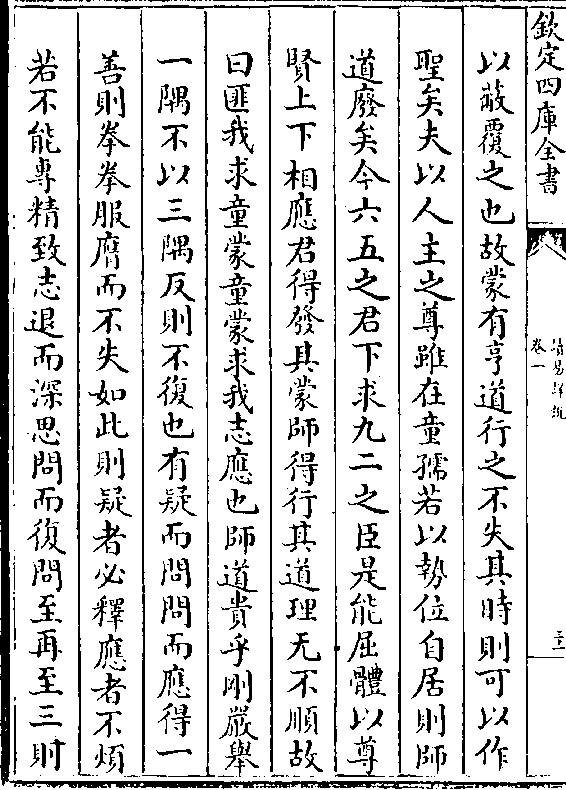 欽定四庫全書
讀易詳說
卷一
三十一
以蔽覆之也故蒙有亨道行之不失其時則可以作
聖矣夫以人主之尊雖在童孺若以勢位自居則師
道廢矣今六五之君下求九二之臣是能屈體以尊
賢上下相應君得發其蒙師得行其道理无不順故
曰匪我求童蒙童蒙求我志應也師道貴乎剛嚴舉
一隅不以三隅反則不復也有疑而問問而應得一
善則拳拳服膺而不失如此則疑者必釋應者不煩
若不能專精致志退而深思問而復問至再至三則